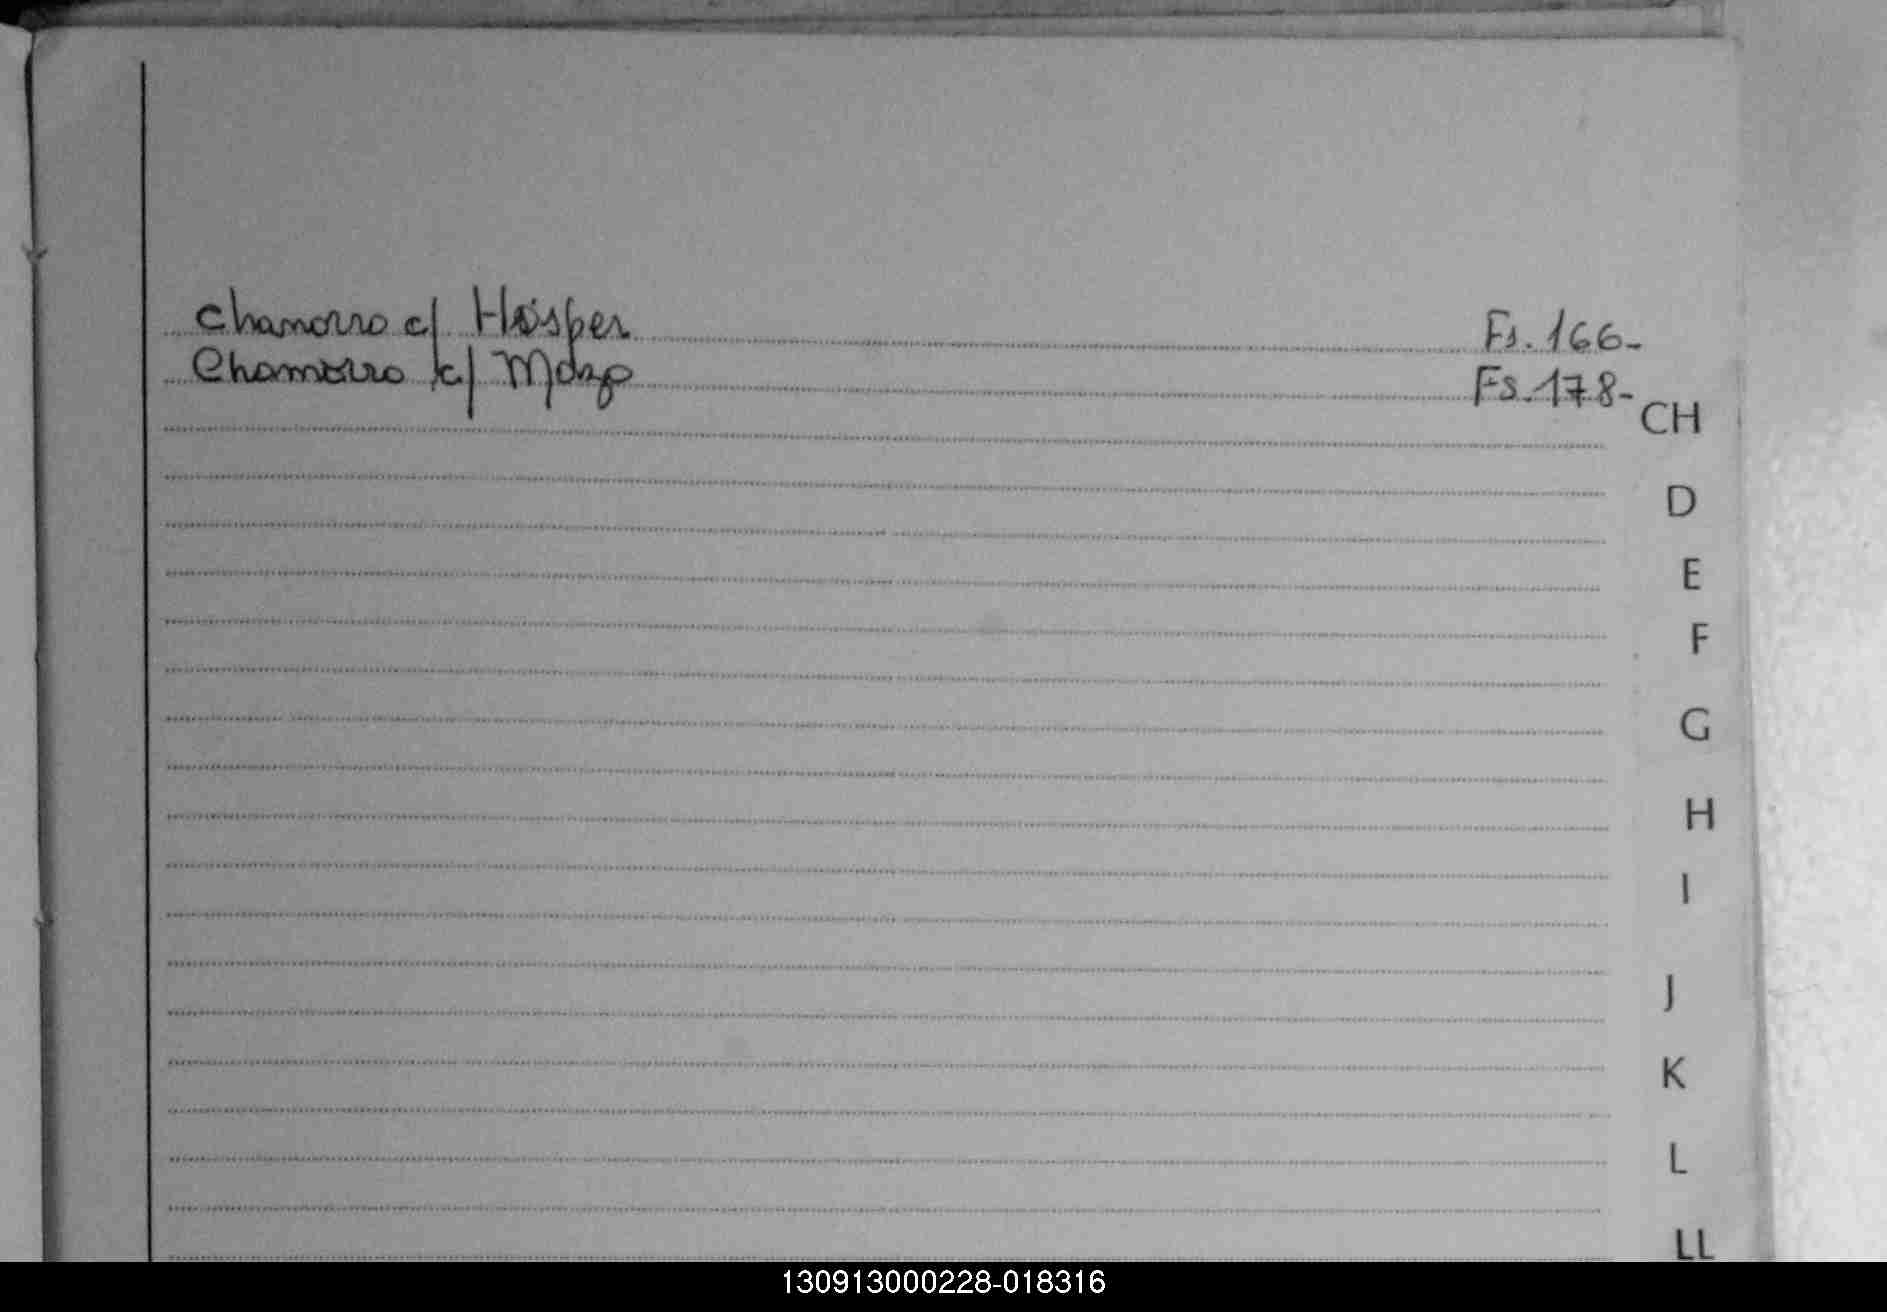 Chamorro c/ Hósper Fs. 166-
Chamorro c/ Fs. 178-
CH
D
E
F
G
H
I
J
K
L
LL
130913000228-018316